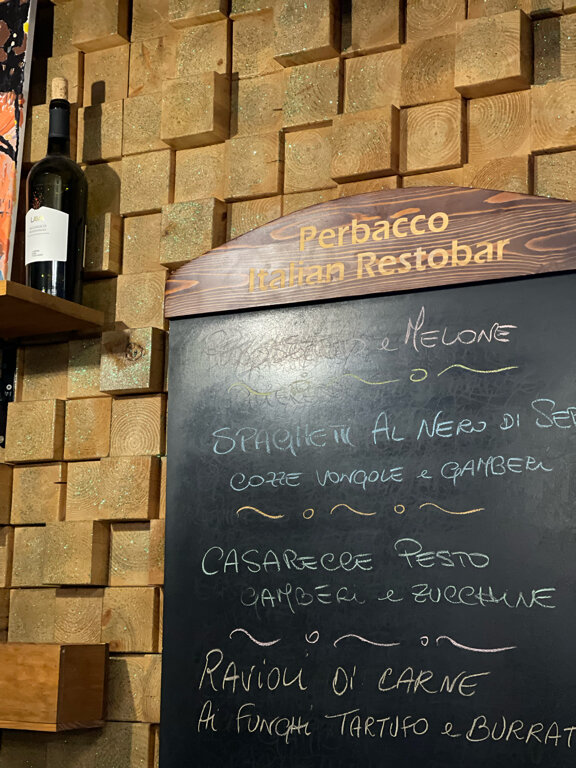 Perbacco
Italian Restobar
e MELONE
SPAGHETTI AL NERO DI SEP
COZZE VONGOLE e GAMBERI
CASARECCE PESTO
GAMBERI e ZUCCHINE
RAVIOLI DI CARNE
AI FUNGHI TARTUFO e BURRAT